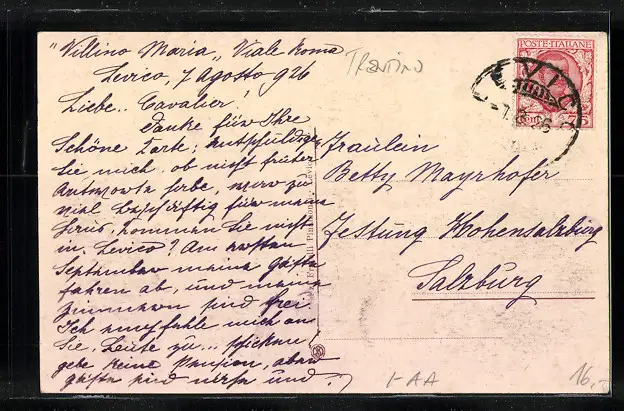 „Villino Maria„ Viale Roma
Levico, 7 Agosto 926
Liebe.. Cavalier!
Danke für Ihre
Schöne Karte; entschuldigen
Sie mich, ob nicht früher
Antworte habe, war zu
viel beschäftig für mein
kommen Sie nicht
in Levico? Am ersten
September meine Gäste
fahren ab, und meine
Zimmern sind frei
Ich empfehle mich an
Sie, Leute zu.. schicken,
gebe keine Pension, aber
Gäste sind und.
TRENTINO
POSTE ITALIANE
Fräulein
Betty Mayrhofer
Festung Hohensalzburg
Salzburg
Fratelli Levico
I-AA
16,-